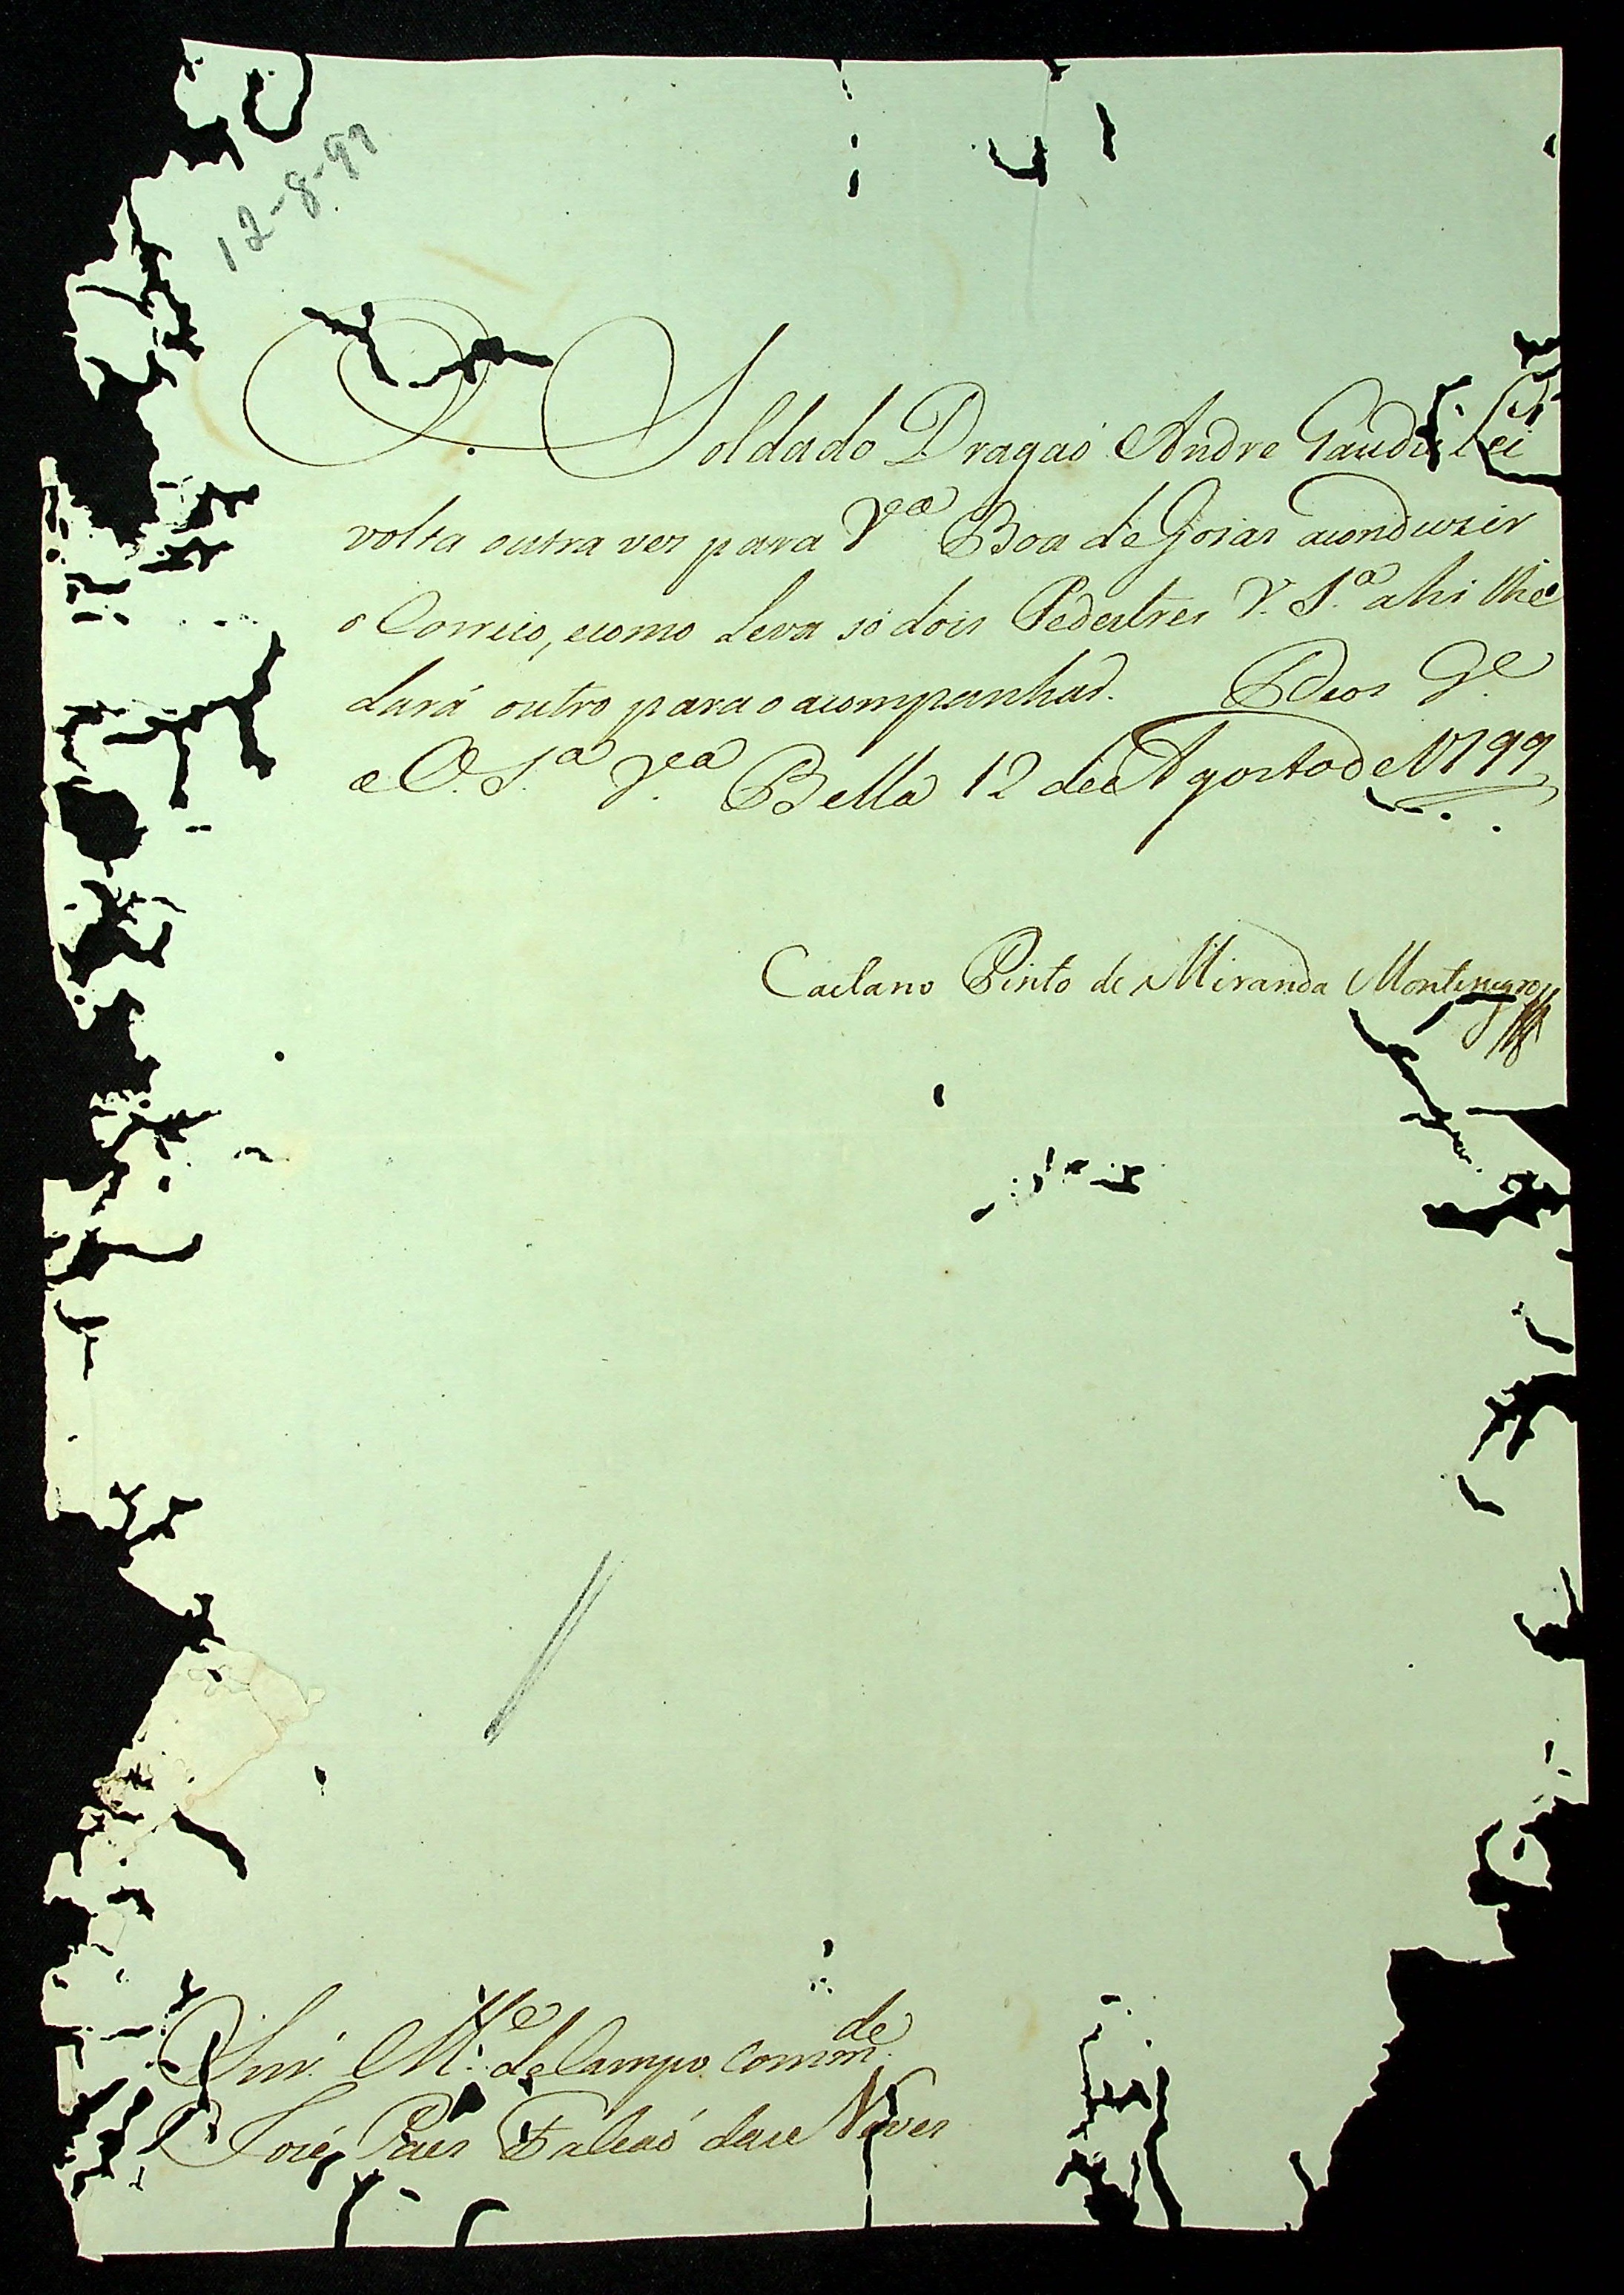 12-8-99
O Soldado Dragaõ Andre Gaudie Lei
volta outra vez para V.ª Boa de Goias a conduzir
o Correio, e como leva só dois Pedestres V. S.ª ahi lhe
dará outro para o acompanhar. Deos G.e
a V. S.ª V.ª Bella 12 de Agosto de 1799
Caetano Pinto de Miranda Montenegro
Snr. M.e de Campo Comm.de
José Paes Falcaõ das Neves